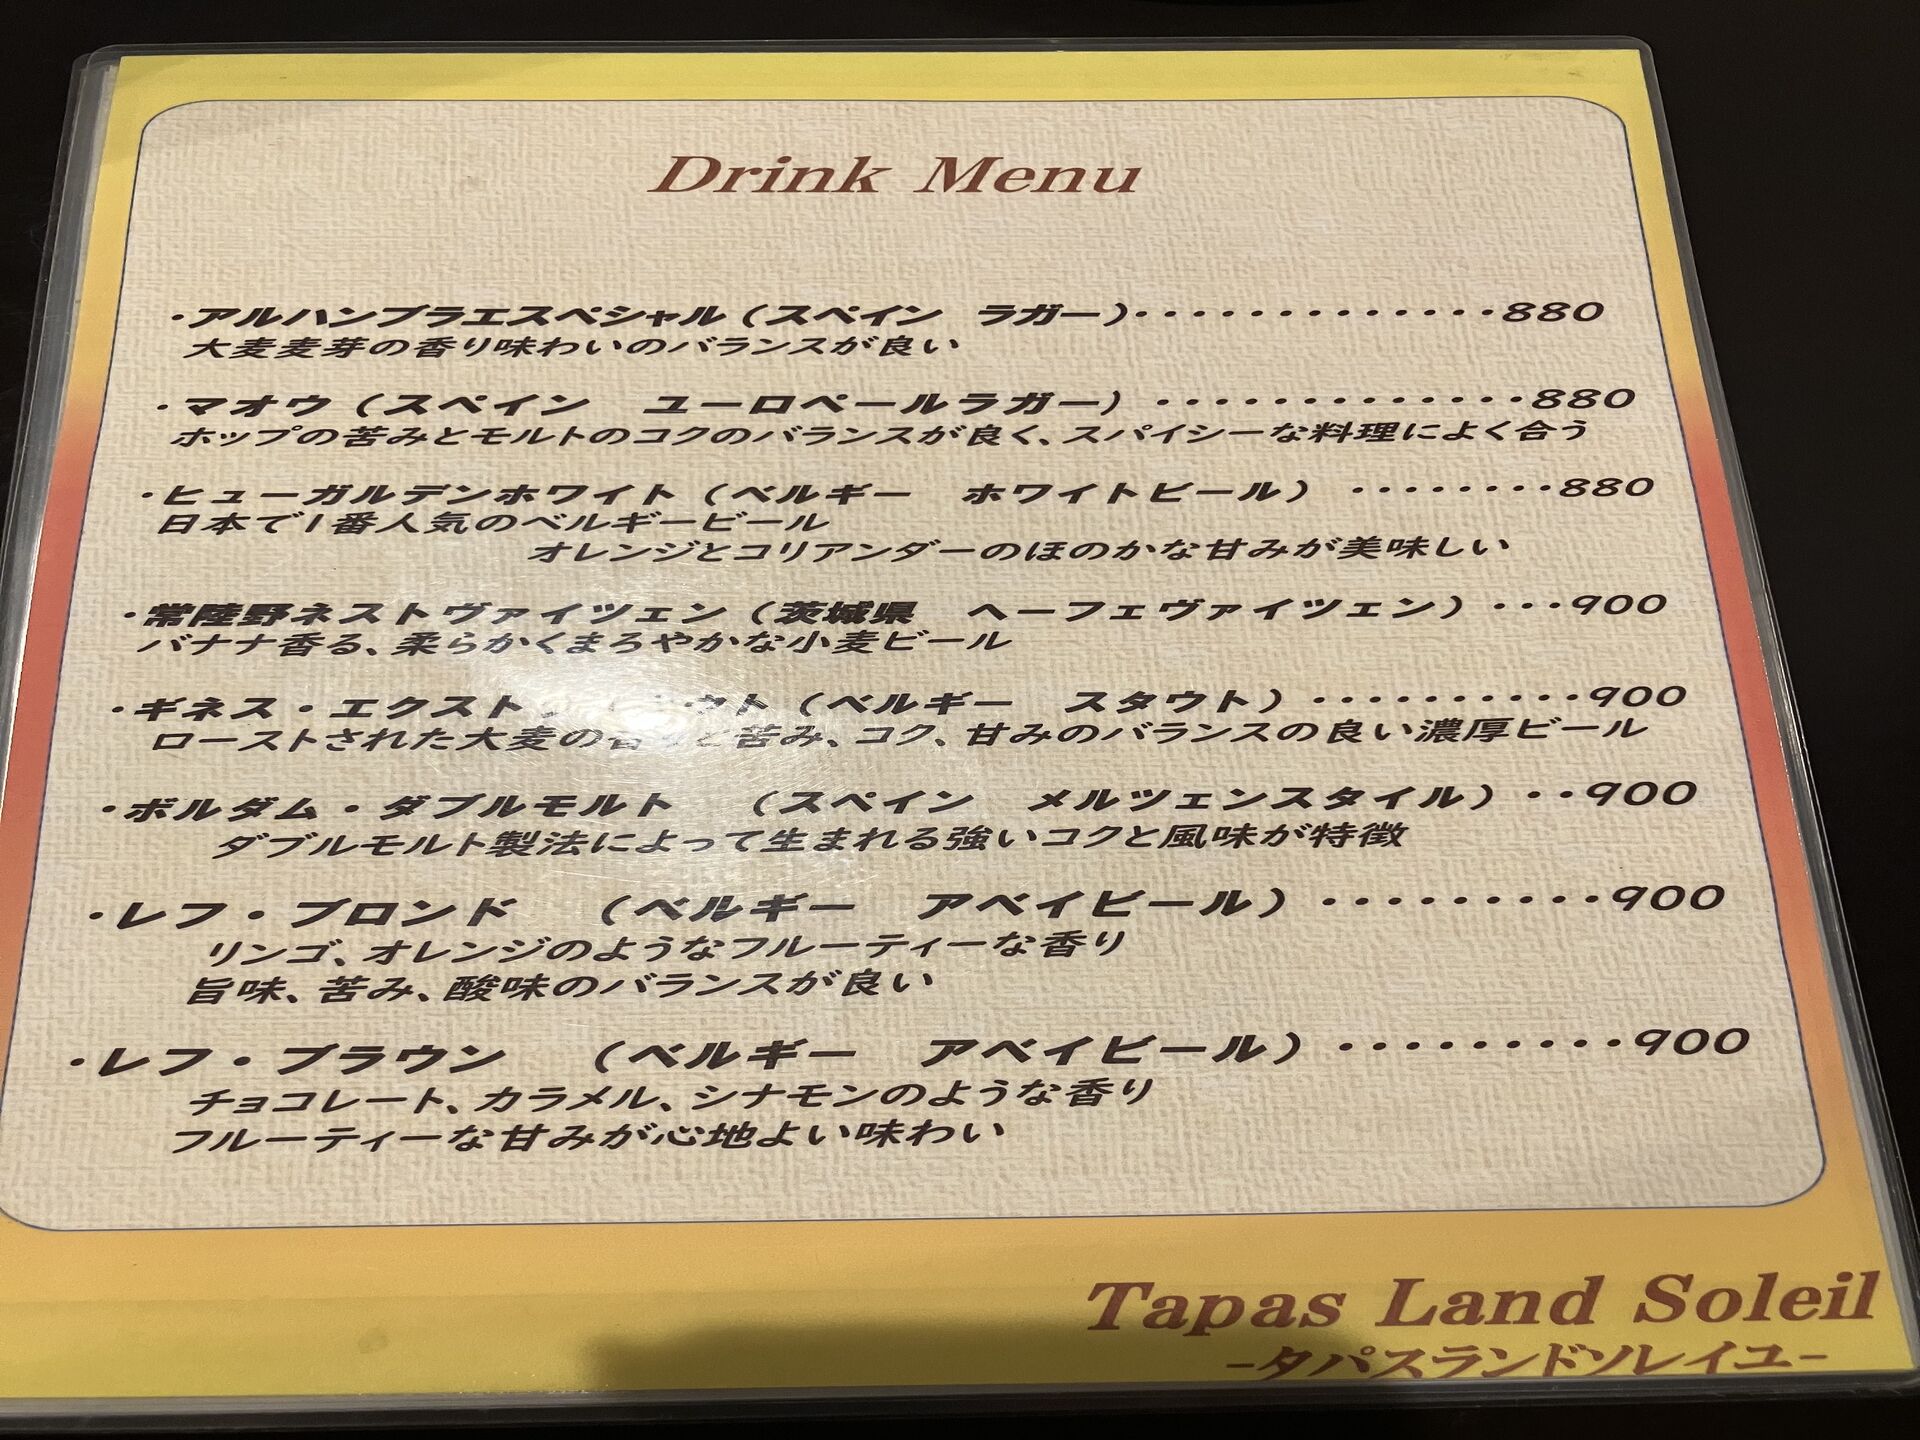 Drink Menu
・アルハンブラエスペシャル（スペイン　ラガー）・・・・・・・・・・・・・・880
大麦麦芽の香り味わいのバランスが良い
・マオウ（スペイン　ユーロペールラガー）・・・・・・・・・・・・・・880
ホップの苦みとモルトのコクのバランスが良く、スパイシーな料理によく合う
・ヒューガルデンホワイト（ベルギー　ホワイトビール）・・・・・・・・880
日本で1番人気のベルギービール
オレンジとコリアンダーのほのかな甘みが美味しい
・常陸野ネストヴァイツェン（茨城県　ヘーフェヴァイツェン）・・・900
バナナ香る、柔らかくまろやかな小麦ビール
・ギネス・エクスト ウト（ベルギー　スタウト）・・・・・・・・・・900
ローストされた大麦の香りと苦み、コク、甘みのバランスの良い濃厚ビール
・ボルダム・ダブルモルト　（スペイン　メルツェンスタイル）・・900
ダブルモルト製法によって生まれる強いコクと風味が特徴
・レフ・ブロンド　（ベルギー　アベイビール）・・・・・・・・・900
リンゴ、オレンジのようなフルーティーな香り
旨味、苦み、酸味のバランスが良い
・レフ・ブラウン　（ベルギー　アベイビール）・・・・・・・・・900
チョコレート、カラメル、シナモンのような香り
フルーティーな甘みが心地よい味わい
Tapas Land Soleil
-タパスランドソレイユ-